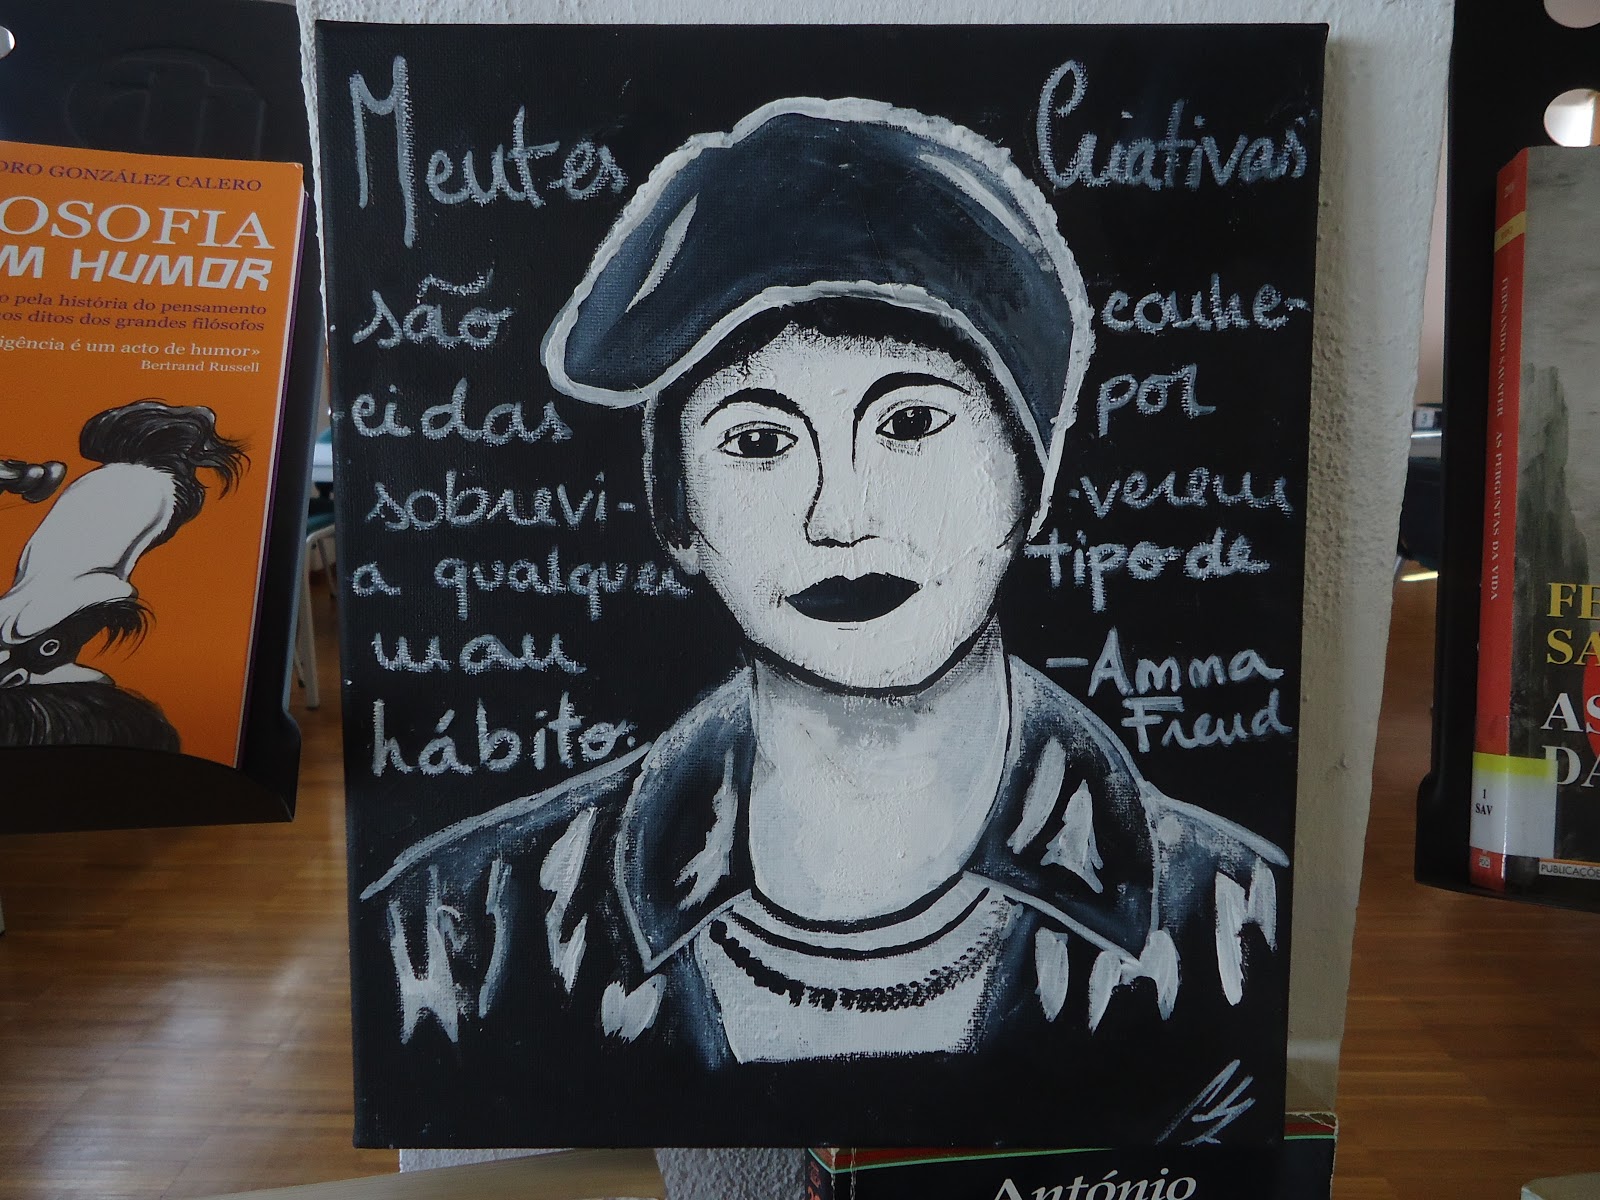 DRO GONZÁLEZ CALERO
OSOFIA
M HUMOR
o pela história do pensamento
os ditos dos grandes filósofos
igência é um acto de humor»
Bertrand Russell
Mentes Criativas
são conhe-
cidas por
sobrevi- verem
a qualquer tipo de
mau
hábito.
- Anna
Freud
FERNANDO SAVATER AS PERGUNTAS DA VIDA
1
SAV
FE
SA
AS
DA
PUBLICAÇÕE
António